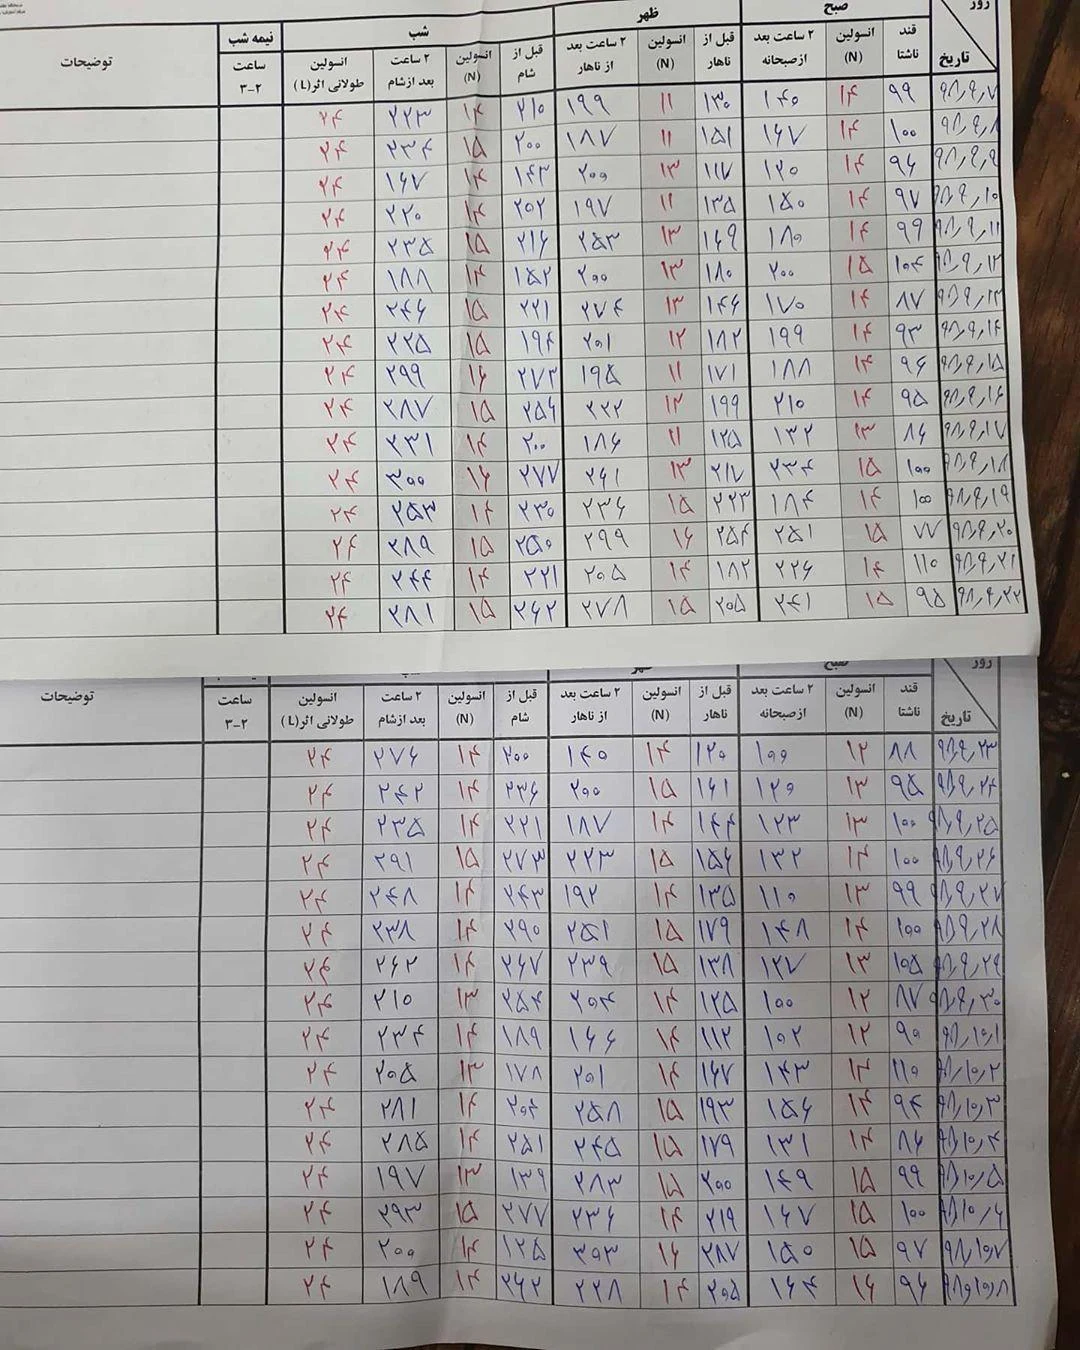 روز
تاریخ
صبح ظهر شب نیمه شب توضیحات
قند ناشتا انسولین (N) ۲ ساعت بعد ازصبحانه قبل از ناهار انسولین (N) ۲ ساعت بعد از ناهار قبل از شام انسولین (N) ۲ ساعت بعد ازشام انسولین طولانی اثر(L) ساعت ۳-۲
۹۸٫۹٫۷ ۹۹ ۱۴ ۱۴۰ ۱۳۰ ۱۱ ۱۹۹ ۲۱۰ ۱۴ ۲۲۳ ۲۴
۹۸٫۹٫۸ ۱۰۰ ۱۴ ۱۶۷ ۱۵۱ ۱۱ ۱۸۷ ۲۰۰ ۱۵ ۲۳۴ ۲۴
۹۸٫۹٫۹ ۹۶ ۱۴ ۱۲۰ ۱۱۷ ۱۳ ۲۰۰ ۱۴۳ ۱۴ ۱۶۷ ۲۴
۹۸٫۹٫۱۰ ۹۷ ۱۴ ۱۵۰ ۱۳۵ ۱۱ ۱۹۷ ۲۵۲ ۱۴ ۲۲۰ ۲۴
۹۸٫۹٫۱۱ ۹۹ ۱۴ ۱۸۰ ۱۶۹ ۱۳ ۲۵۳ ۲۱۶ ۱۵ ۲۳۵ ۲۴
۹۸٫۹٫۱۲ ۱۰۴ ۱۵ ۲۰۰ ۱۸۰ ۱۳ ۲۰۰ ۱۵۲ ۱۴ ۱۸۸ ۲۴
۹۸٫۹٫۱۳ ۸۷ ۱۴ ۱۷۰ ۱۴۶ ۱۳ ۲۷۴ ۲۲۱ ۱۵ ۲۴۶ ۲۴
۹۸٫۹٫۱۴ ۹۳ ۱۴ ۱۹۹ ۱۸۲ ۱۲ ۲۰۱ ۱۹۴ ۱۵ ۲۲۵ ۲۴
۹۸٫۹٫۱۵ ۹۶ ۱۴ ۱۸۸ ۱۷۱ ۱۱ ۱۹۵ ۲۷۳ ۱۶ ۲۹۹ ۲۴
۹۸٫۹٫۱۶ ۹۵ ۱۴ ۲۱۰ ۱۹۹ ۱۲ ۲۲۲ ۲۵۶ ۱۵ ۲۸۷ ۲۴
۹۸٫۹٫۱۷ ۸۶ ۱۳ ۱۳۲ ۱۲۵ ۱۱ ۱۸۶ ۲۰۰ ۱۴ ۲۳۱ ۲۴
۹۸٫۹٫۱۸ ۱۰۰ ۱۵ ۲۳۴ ۲۱۷ ۱۳ ۲۶۱ ۲۷۷ ۱۶ ۳۰۰ ۲۴
۹۸٫۹٫۱۹ ۱۰۰ ۱۴ ۱۸۴ ۲۲۳ ۱۵ ۲۳۶ ۲۳۰ ۱۴ ۲۵۳ ۲۴
۹۸٫۹٫۲۰ ۷۷ ۱۵ ۲۵۱ ۲۵۴ ۱۶ ۲۹۹ ۲۵۰ ۱۵ ۲۸۹ ۲۴
۹۸٫۹٫۲۱ ۱۱۰ ۱۴ ۲۲۶ ۱۸۲ ۱۴ ۲۰۵ ۲۲۱ ۱۴ ۲۴۴ ۲۴
۹۸٫۹٫۲۲ ۹۵ ۱۵ ۲۴۱ ۲۰۵ ۱۵ ۲۷۸ ۲۶۲ ۱۵ ۲۸۱ ۲۴
روز
تاریخ
صبح ظهر شب توضیحات
قند ناشتا انسولین (N) ۲ ساعت بعد ازصبحانه قبل از ناهار انسولین (N) ۲ ساعت بعد از ناهار قبل از شام انسولین (N) ۲ ساعت بعد ازشام انسولین طولانی اثر(L) ساعت ۳-۲
۹۸٫۹٫۲۳ ۸۸ ۱۲ ۱۰۰ ۱۲۰ ۱۴ ۱۴۰ ۲۰۰ ۱۴ ۲۷۶ ۲۴
۹۸٫۹٫۲۴ ۹۵ ۱۳ ۱۲۰ ۱۶۱ ۱۵ ۲۰۰ ۲۳۶ ۱۴ ۲۴۲ ۲۴
۹۸٫۹٫۲۵ ۱۰۰ ۱۳ ۱۲۳ ۱۴۴ ۱۴ ۱۸۷ ۲۲۱ ۱۴ ۲۳۵ ۲۴
۹۸٫۹٫۲۶ ۱۰۰ ۱۴ ۱۳۲ ۱۵۶ ۱۵ ۲۲۳ ۲۷۳ ۱۵ ۲۹۱ ۲۴
۹۸٫۹٫۲۷ ۹۹ ۱۳ ۱۱۰ ۱۳۵ ۱۴ ۱۹۲ ۲۴۳ ۱۴ ۲۴۸ ۲۴
۹۸٫۹٫۲۸ ۱۰۰ ۱۴ ۱۴۸ ۱۷۹ ۱۵ ۲۵۱ ۲۹۰ ۱۴ ۲۳۸ ۲۴
۹۸٫۹٫۲۹ ۱۰۵ ۱۳ ۱۲۷ ۱۳۸ ۱۵ ۲۳۹ ۲۶۷ ۱۴ ۲۶۲ ۲۴
۹۸٫۹٫۳۰ ۸۷ ۱۲ ۱۰۰ ۱۲۵ ۱۴ ۲۰۴ ۲۵۴ ۱۳ ۲۱۰ ۲۴
۹۸٫۱۰٫۱ ۹۰ ۱۲ ۱۰۲ ۱۱۲ ۱۴ ۱۶۶ ۱۸۹ ۱۴ ۲۳۴ ۲۴
۹۸٫۱۰٫۲ ۱۱۰ ۱۴ ۱۴۳ ۱۶۷ ۱۴ ۲۰۱ ۱۷۸ ۱۳ ۲۰۵ ۲۴
۹۸٫۱۰٫۳ ۹۴ ۱۴ ۱۵۶ ۱۹۳ ۱۵ ۲۵۸ ۲۰۴ ۱۴ ۲۸۱ ۲۴
۹۸٫۱۰٫۴ ۸۶ ۱۴ ۱۳۱ ۱۷۹ ۱۵ ۲۴۵ ۲۵۱ ۱۴ ۲۸۵ ۲۴
۹۸٫۱۰٫۵ ۹۹ ۱۵ ۱۴۹ ۲۰۰ ۱۵ ۲۸۳ ۱۳۹ ۱۳ ۱۹۷ ۲۴
۹۸٫۱۰٫۶ ۱۰۰ ۱۵ ۱۶۷ ۲۱۹ ۱۴ ۲۳۶ ۲۷۷ ۱۵ ۲۹۳ ۲۴
۹۸٫۱۰٫۷ ۹۷ ۱۵ ۱۵۰ ۲۸۷ ۱۶ ۳۰۳ ۱۲۵ ۱۴ ۲۰۰ ۲۴
۹۸٫۱۰٫۸ ۹۶ ۱۶ ۱۶۴ ۲۰۵ ۱۴ ۲۲۸ ۲۶۲ ۱۴ ۱۸۹ ۲۴